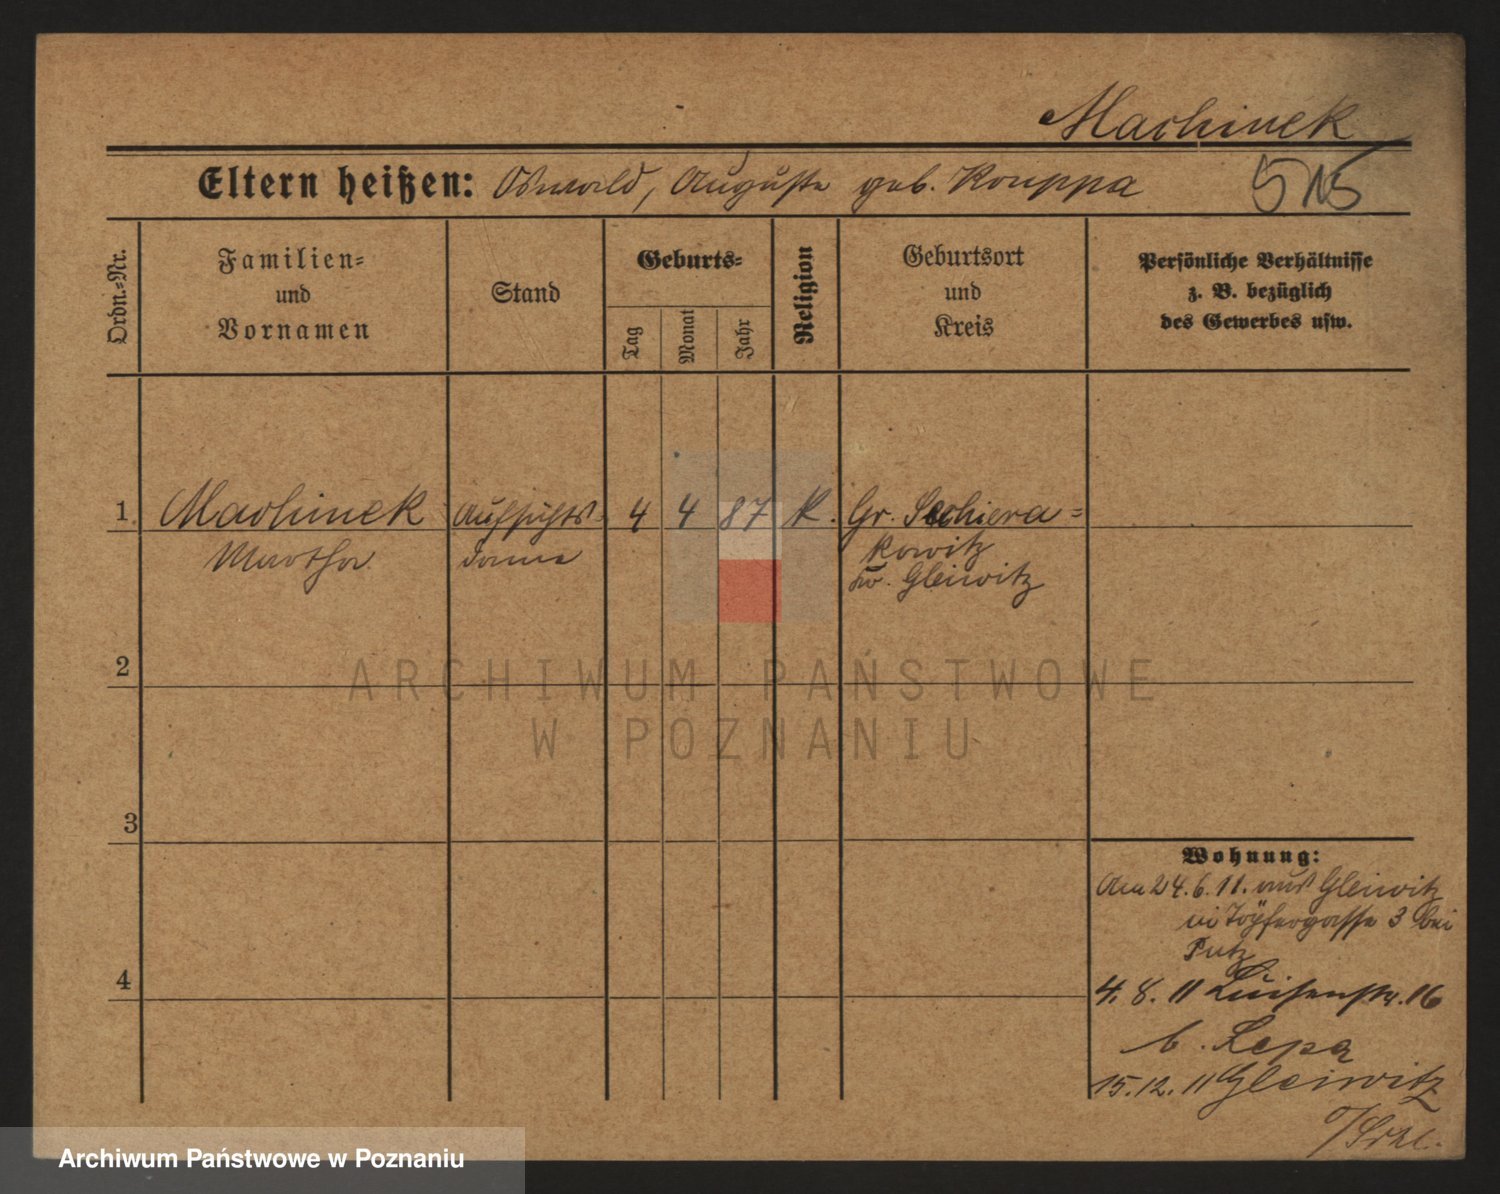 Machinek
Eltern heißen: Oswald, Auguste geb. Kouppa
515
Ordn.-Nr.
Familien-
und
Vornamen
Stand
Geburts-
Tag
Monat
Jahr
Religion
Geburtsort
und
Kreis
Persönliche Verhältnisse
z. B. bezüglich
des Gewerbes usw.
1 Machinek Aufsichts- 4 4 87 K. Gr. Schiera-
Martha dame kowitz
Kr. Gleiwitz
2
3
4
Wohnung:
Am 24.6.11. aus Gleiwitz
in Töpfergasse 3 bei
Putz
4. 8. 11 Luisenstr. 16
b. Lepa
15.12.11 Gleiwitz
ARCHIWUM PAŃSTWOWE
W POZNANIU
Archiwum Państwowe w Poznaniu